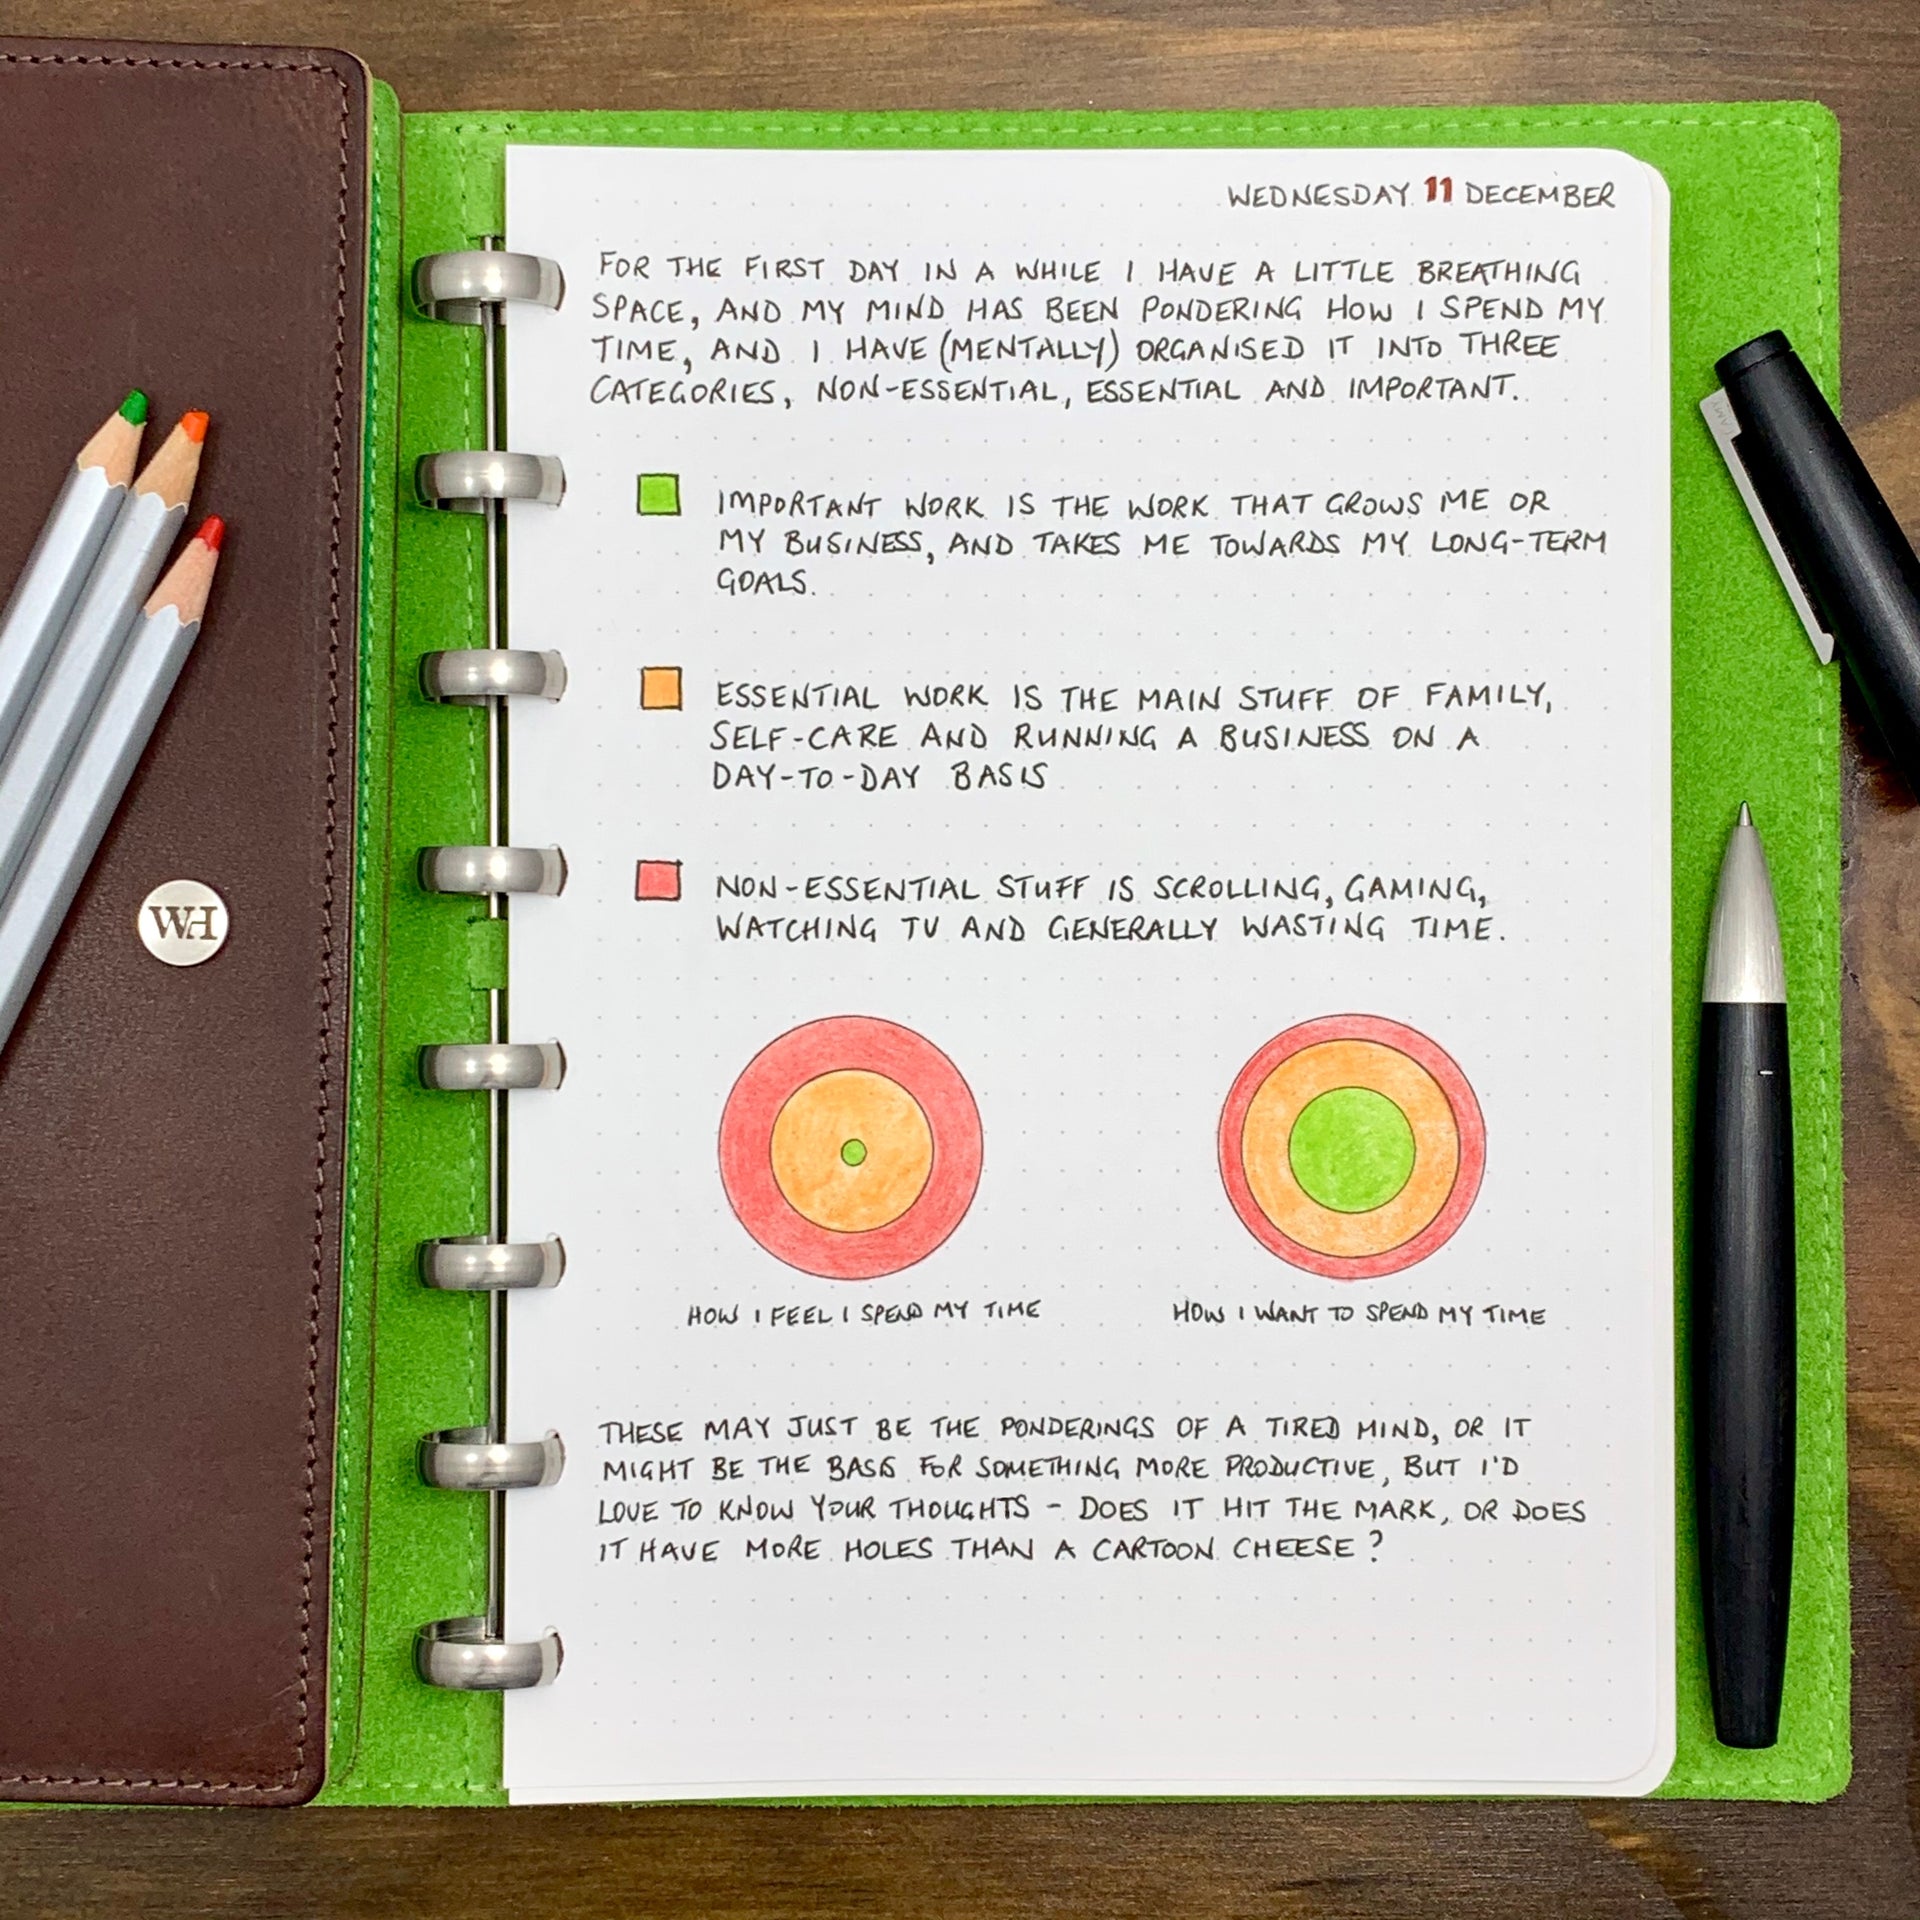 WEDNESDAY 11 DECEMBER
FOR THE FIRST DAY IN A WHILE I HAVE A LITTLE BREATHING
SPACE, AND MY MIND HAS BEEN PONDERING HOW I SPEND MY
TIME, AND I HAVE (MENTALLY) ORGANISED IT INTO THREE
CATEGORIES, NON-ESSENTIAL, ESSENTIAL AND IMPORTANT.
IMPORTANT WORK IS THE WORK THAT GROWS ME OR
MY BUSINESS, AND TAKES ME TOWARDS MY LONG-TERM
GOALS.
ESSENTIAL WORK IS THE MAIN STUFF OF FAMILY,
SELF-CARE AND RUNNING A BUSINESS ON A
DAY-TO-DAY BASIS
NON-ESSENTIAL STUFF IS SCROLLING, GAMING,
WATCHING TV AND GENERALLY WASTING TIME.
HOW I FEEL I SPEND MY TIME
HOW I WANT TO SPEND MY TIME
THESE MAY JUST BE THE PONDERINGS OF A TIRED MIND, OR IT
MIGHT BE THE BASIS FOR SOMETHING MORE PRODUCTIVE, BUT I'D
LOVE TO KNOW YOUR THOUGHTS - DOES IT HIT THE MARK, OR DOES
IT HAVE MORE HOLES THAN A CARTOON CHEESE?
WH
LAMY